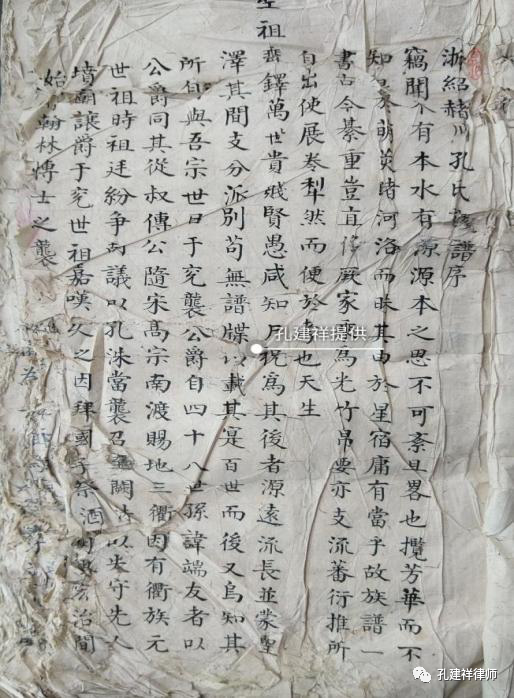 浙紹赭川孔氏 譜序
竊聞人有本水有源源本之思不可紊且畧也攬芳華而不
知 於萌 睹河洛而昧其由於星宿庸有當乎故族譜一
書古今綦重豈直 厥家 為光竹帛要亦支流蕃衍推所
自出使展卷犁然而便於 也天生
聖祖 鐸萬世貴賤賢愚咸知尸祝為其後者源遠流長並蒙聖
澤其間支分派別苟無譜牒以載其寔百世而後又烏知其
所自與吾宗世日于兗襲公爵自四十八世孫諱端友者以
公爵同其從叔傳公隨宋高宗南渡賜地三衢因有衢族元
世祖時祖廷紛争有議以孔洙當襲召至闕 以失守先人
墳廟讓爵于兗世祖嘉嘆久之因拜國子祭酒明 宏治間
始 翰林博士之襲
孔建祥提供
孔建祥律师